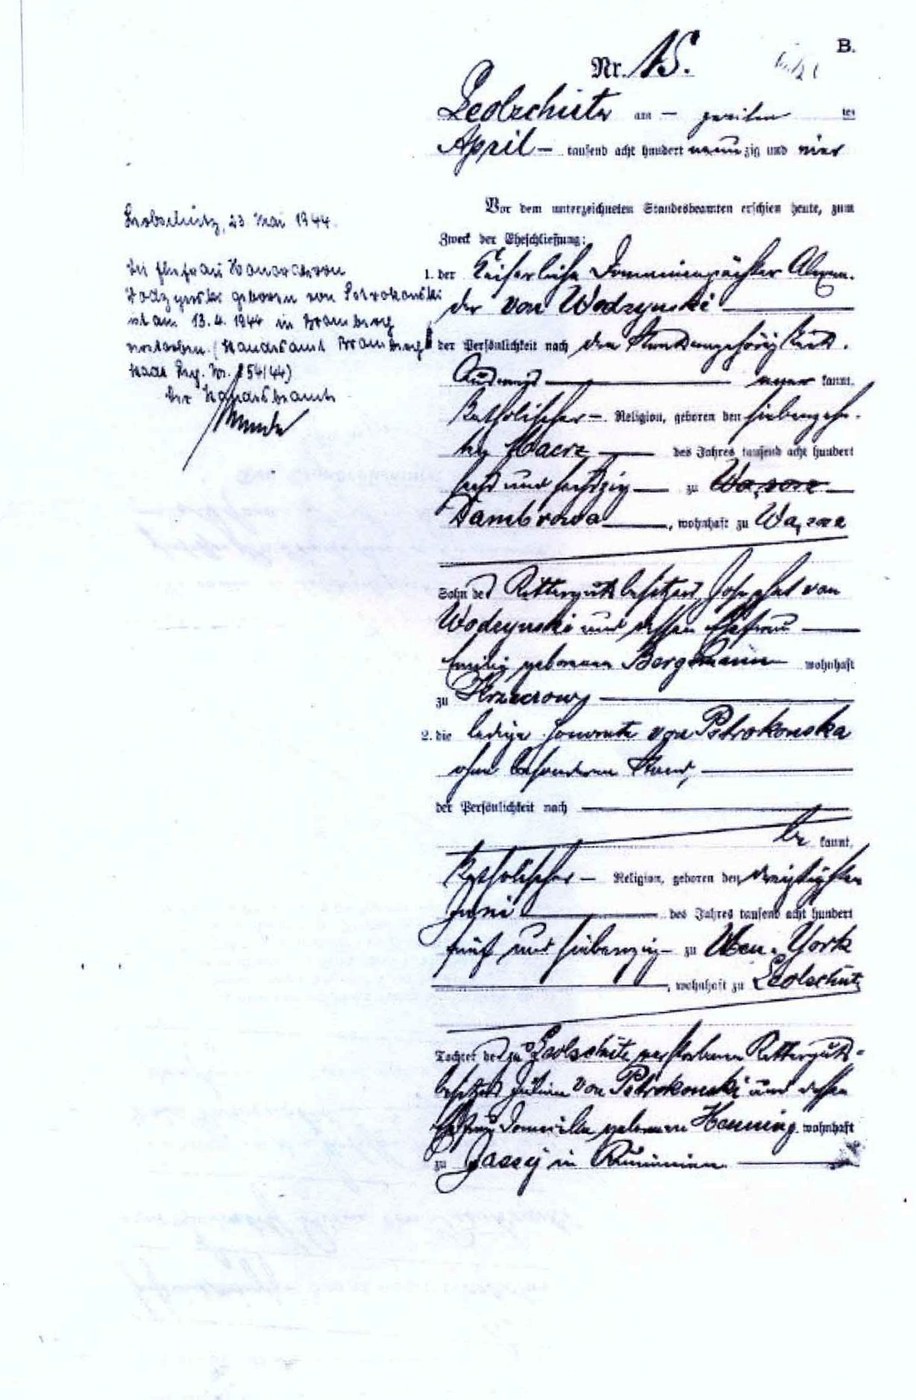 B.
Nr. 15.
Leobschütz am — zweiten ten
April — tausend acht hundert neunzig und vier
Vor dem unterzeichneten Standesbeamten erschien heute, zum
Zweck der Eheschließung:
1. der Kaiserliche Domainenpächter
der von Wodzynski
der Persönlichkeit nach
kannt,
Katholischer — Religion, geboren den siebenzehn-
ten Maerz des Jahres tausend acht hundert
sechs und sechszig zu
Dambrowa, wohnhaft zu
Sohn des Rittergutsbesitzers Josephat von
Wodzynski und dessen Ehefrau
Emilie geborenen Bergmann wohnhaft
zu
2. die ledige von Potrokonska
ohne besonderen Stand,
der Persönlichkeit nach
be kannt,
Katholischer — Religion, geboren den dreißigsten
Juni des Jahres tausend acht hundert
fünf und siebenzig zu New-York
, wohnhaft zu Leobschütz
Tochter des zu Leobschütz verstorbenen Ritterguts-
besitzers Julian von Potrokonski und dessen
Ehefrau geborenen Henning wohnhaft
zu Jassy in Rumänien
Leobschütz, 23. Mai 1944.
Die Ehefrau von
Wodzynski geborene von Potrokonski
ist am 13.4.1944 in Bromberg
verstorben. (Standesamt Bromberg
Stadt Reg. Nr. 854/44)
Der Standesbeamte